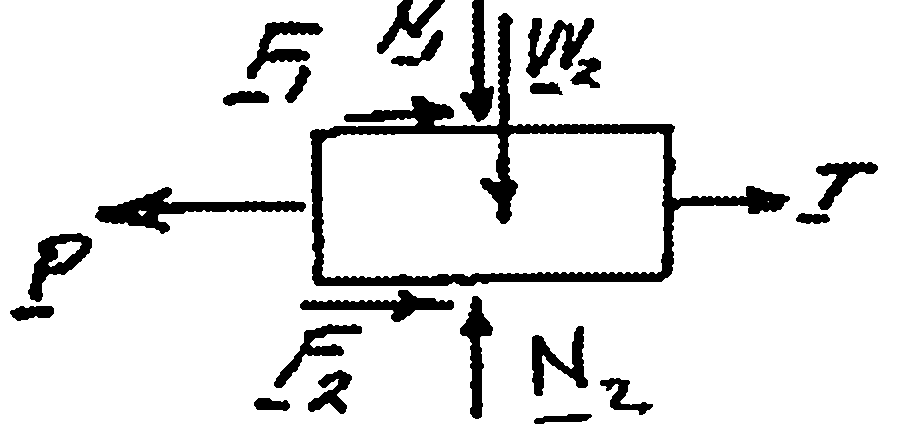 F₁ N₁ W₂
P T
F₂ N₂